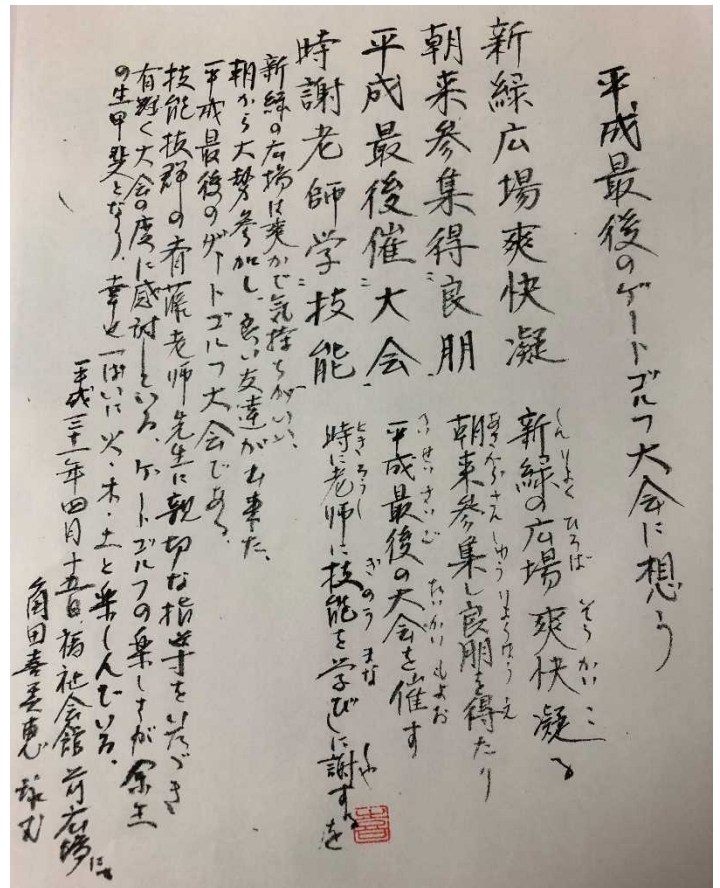 平成最後のゲートゴルフ大会に想う
新緑広場爽快凝
朝来参集得良朋
平成最後催大会
時謝老師学技能
新緑の広場爽快凝る
しんりょくひろばそうかいこ
朝来参集し良朋を得たり
平成最後の大会を催す
へいせいさいごたいかいもよお
時に老師に技能を学びしに謝するを
ときろうしぎのうまなしゃ
新緑の広場は爽かで気持ちがいい、
朝から大勢参加し、良い友達が出来た、
平成最後のゲートゴルフ大会である、
技能抜群の斉藤老師先生に親切な指导をいただき
有難く大会の度に感謝している ゲートゴルフの楽しさが余生
の生甲斐となり、幸せ一ぱいに火・木・土と楽しんでいる、
平成三十一年四月十五日、福祉会館前広場にて
角田喜